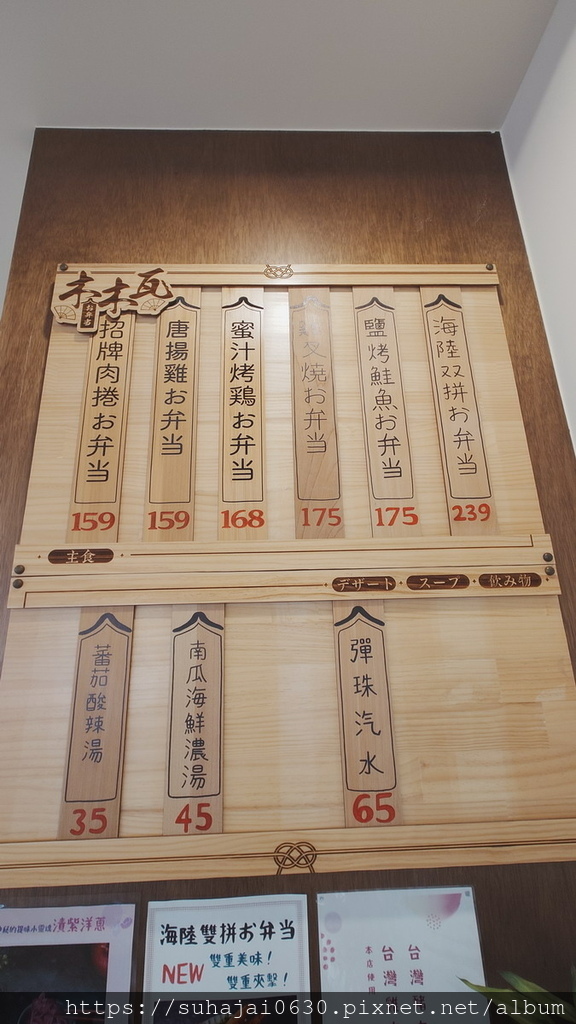 木木瓦
お弁当
招牌肉捲お弁当
159
唐揚雞お弁当
159
蜜汁烤鶏お弁当
168
叉燒お弁当
175
鹽烤鮭魚お弁当
175
海陸双拼お弁当
239
主食
デザート
スープ
飲み物
蕃茄酸辣湯
35
南瓜海鮮濃湯
45
彈珠汽水
65
漬紫洋蔥
海陸雙拼お弁当
NEW
雙重美味！
雙重夾擊！
台灣
台灣
本店使用
https://suhajai0630.pixnet.net/album